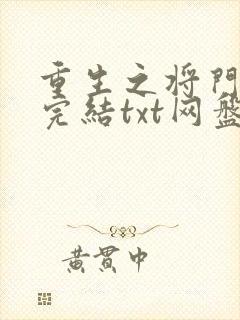 重生之将門
完結txt网盤
黃貫中